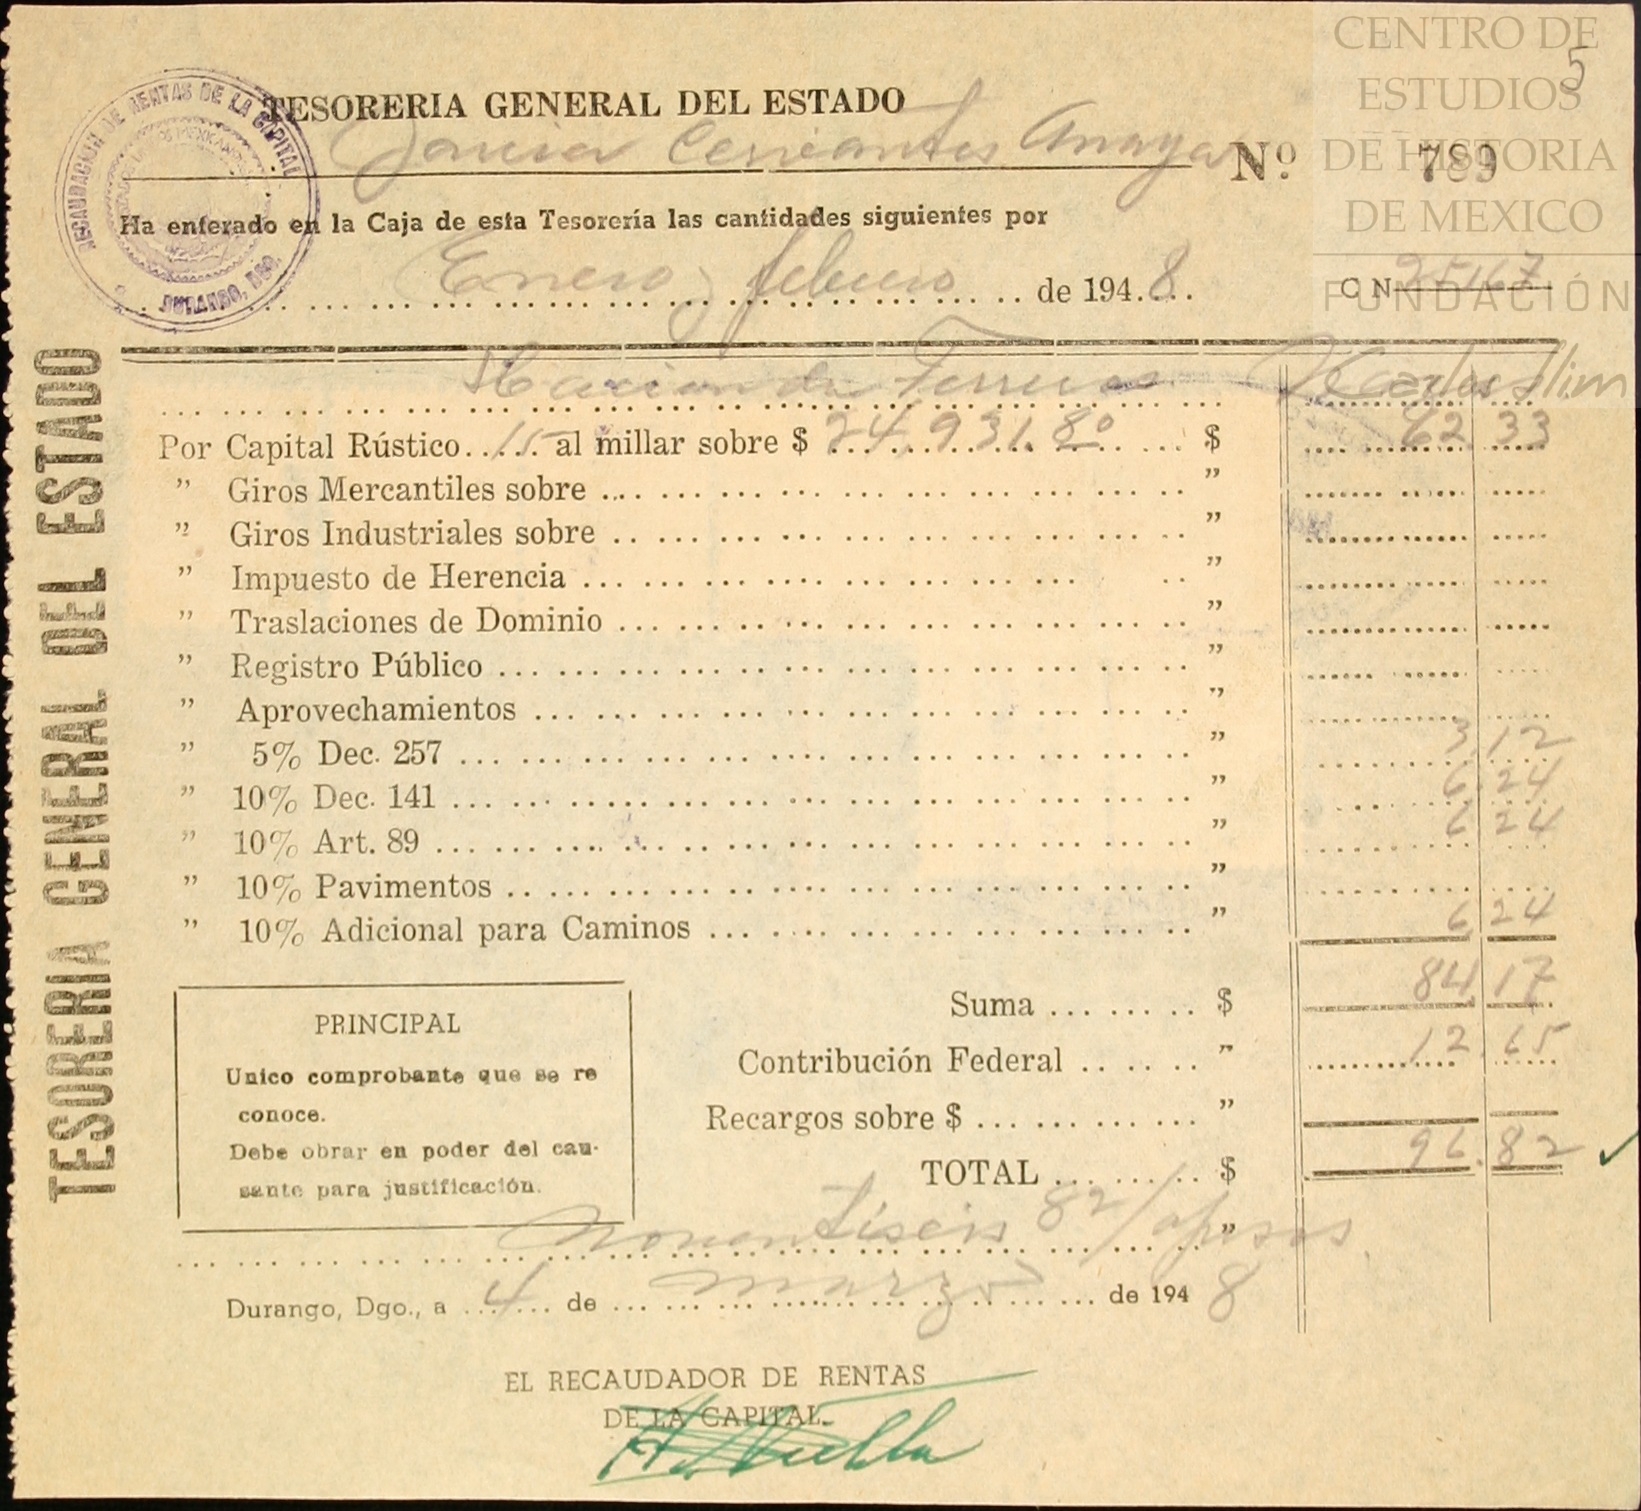 CENTRO DE
ESTUDIOS
DE HISTORIA
DE MEXICO
FUNDACIÓN
Carlos Slim
5
RECAUDACION DE RENTAS DE LA CAPITAL
DURANGO, DGO.
TESORERIA GENERAL DEL ESTADO
Cervantes Anaya Nº 789
Ha enterado en la Caja de esta Tesorería las cantidades siguientes por
Enero y febrero de 1948.
C N 25167
TESORERIA GENERAL DEL ESTADO
Hacienda
Por Capital Rústico 15 al millar sobre $ 24.931.80 $ 62 33
" Giros Mercantiles sobre "
" Giros Industriales sobre "
" Impuesto de Herencia "
" Traslaciones de Dominio "
" Registro Público "
" Aprovechamientos "
" 5% Dec. 257 " 3 12
" 10% Dec. 141 " 6 24
" 10% Art. 89 " 6 24
" 10% Pavimentos "
" 10% Adicional para Caminos " 6 24
Suma $ 84 17
Contribución Federal " 12 65
Recargos sobre $ "
TOTAL $ 96.82
PRINCIPAL
Unico comprobante que se re
conoce.
Debe obrar en poder del cau-
sante para justificación.
Noventiseis 82/ pesos "
Durango, Dgo., a 4 de marzo de 1948
EL RECAUDADOR DE RENTAS
DE LA CAPITAL.